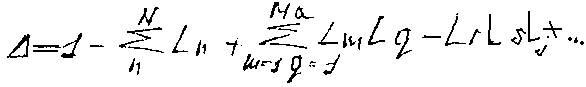 Δ = 1 - \sum_{n}^{N} L_n + \sum_{m=1, q=1}^{M, Q} L_m L_q - L_r L_s L_t + ...